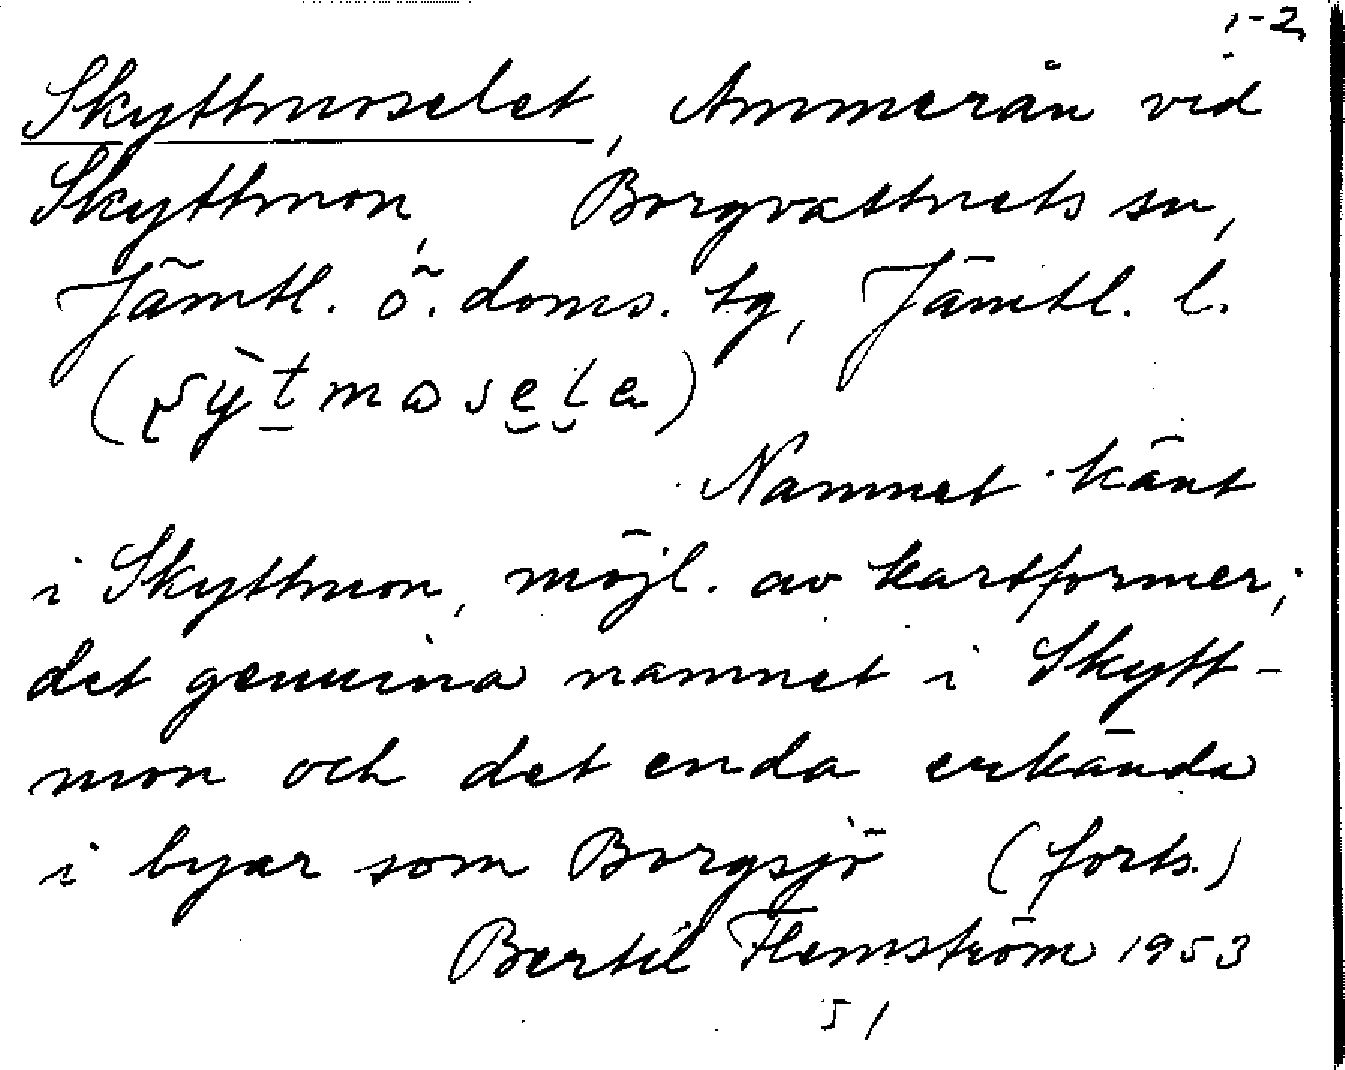 1-2
Skyttmoselet, Ammerån vid
Skyttmon, Borgvattnets sn,
Jämtl. ö. doms. tg, Jämtl. l.
Namnet känt
i Skyttmon, möjl. av kartformer;
det genuina namnet i Skytt-
mon och det enda erkända
i byar som Borgsjö (forts.)
Bertil Flemström 1953
51